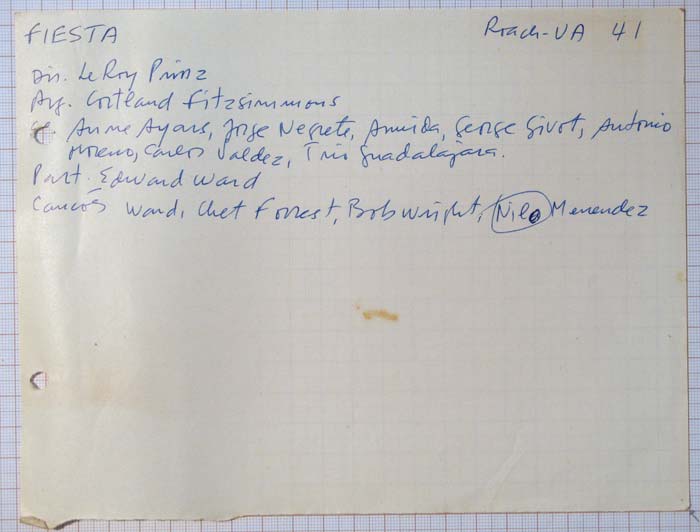 FIESTA Roach-UA 41
Dir. LeRoy Prinz
Arg. Cortland Fitzsimmons
Anne Ayars, Jorge Negrete, Armida, George Givot, Antonio
Moreno, Carlos Valdez, Trio Guadalajara.
Part. Edward Ward
Canções Ward, Chet Forrest, Bob Wright, Nilo Menendez